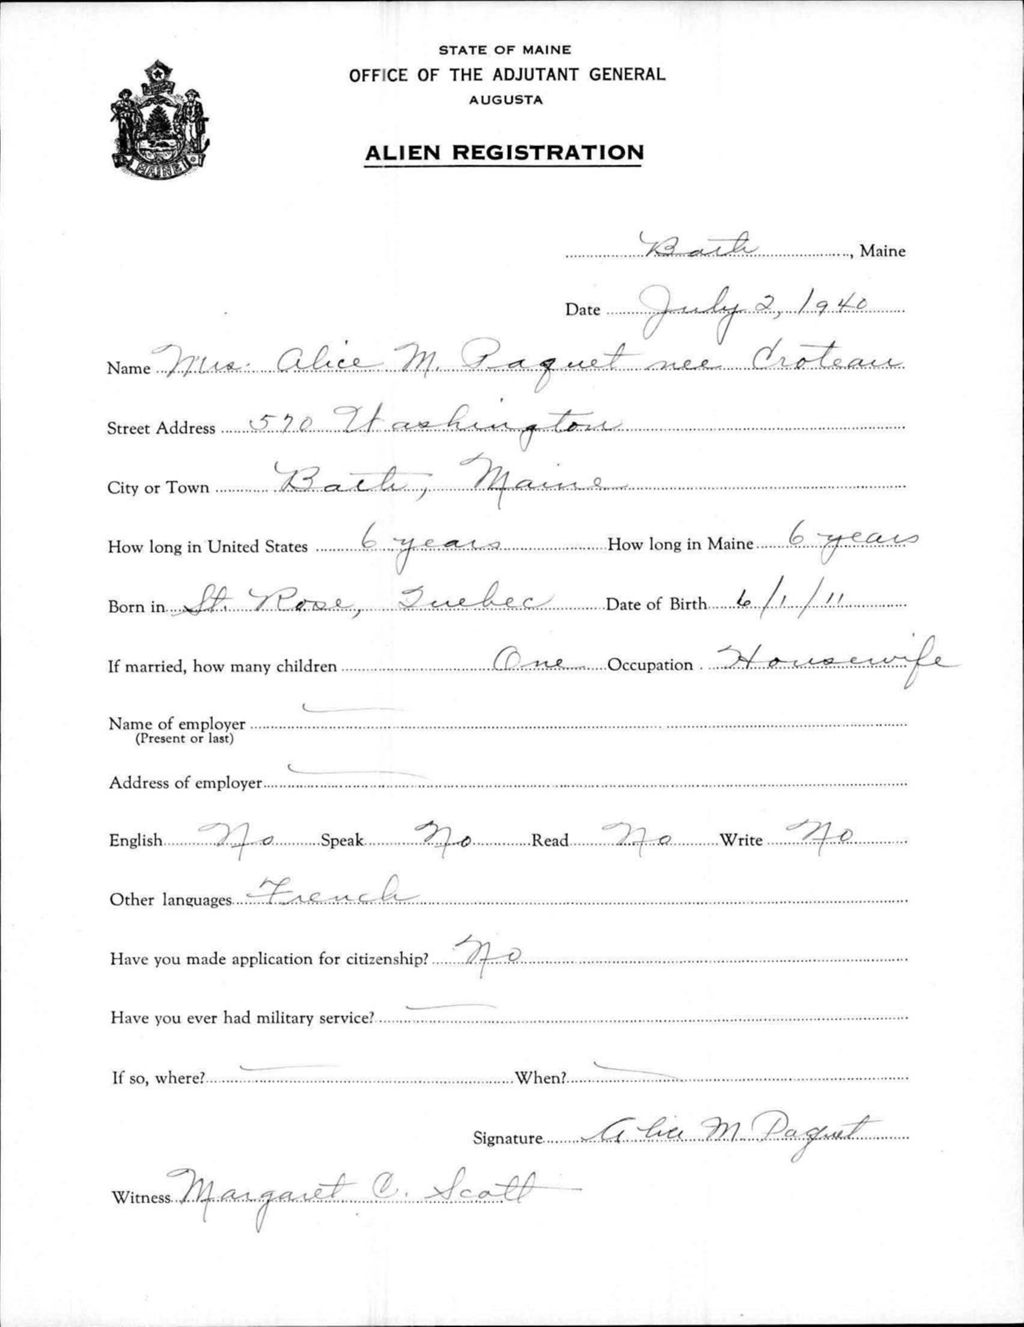 STATE OF MAINE
OFFICE OF THE ADJUTANT GENERAL
AUGUSTA
ALIEN REGISTRATION
MAINE
Bath, Maine
Date July 2, 1940
Name Mrs. Alice M. Paquet nee Croteau
Street Address 570 Washington
City or Town Bath, Maine
How long in United States 6 years How long in Maine 6 years
Born in St. Rose, Quebec Date of Birth 6/1/11
If married, how many children One Occupation Housewife
Name of employer
(Present or last)
Address of employer
English No Speak No Read No Write No
Other languages French
Have you made application for citizenship? No
Have you ever had military service?
If so, where? When?
Signature Alice M Paquet
Witness Margaret C. Scott